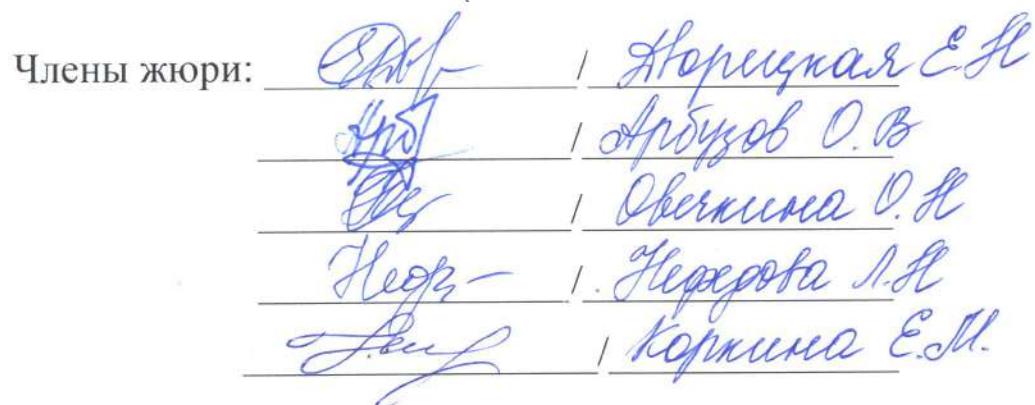 Члены жюри: / Дворецкая Е.Н
/ Арбузов О.В
/ Овечкина О.Н
/ Нефедова Л.Н
/ Коркина Е.М.